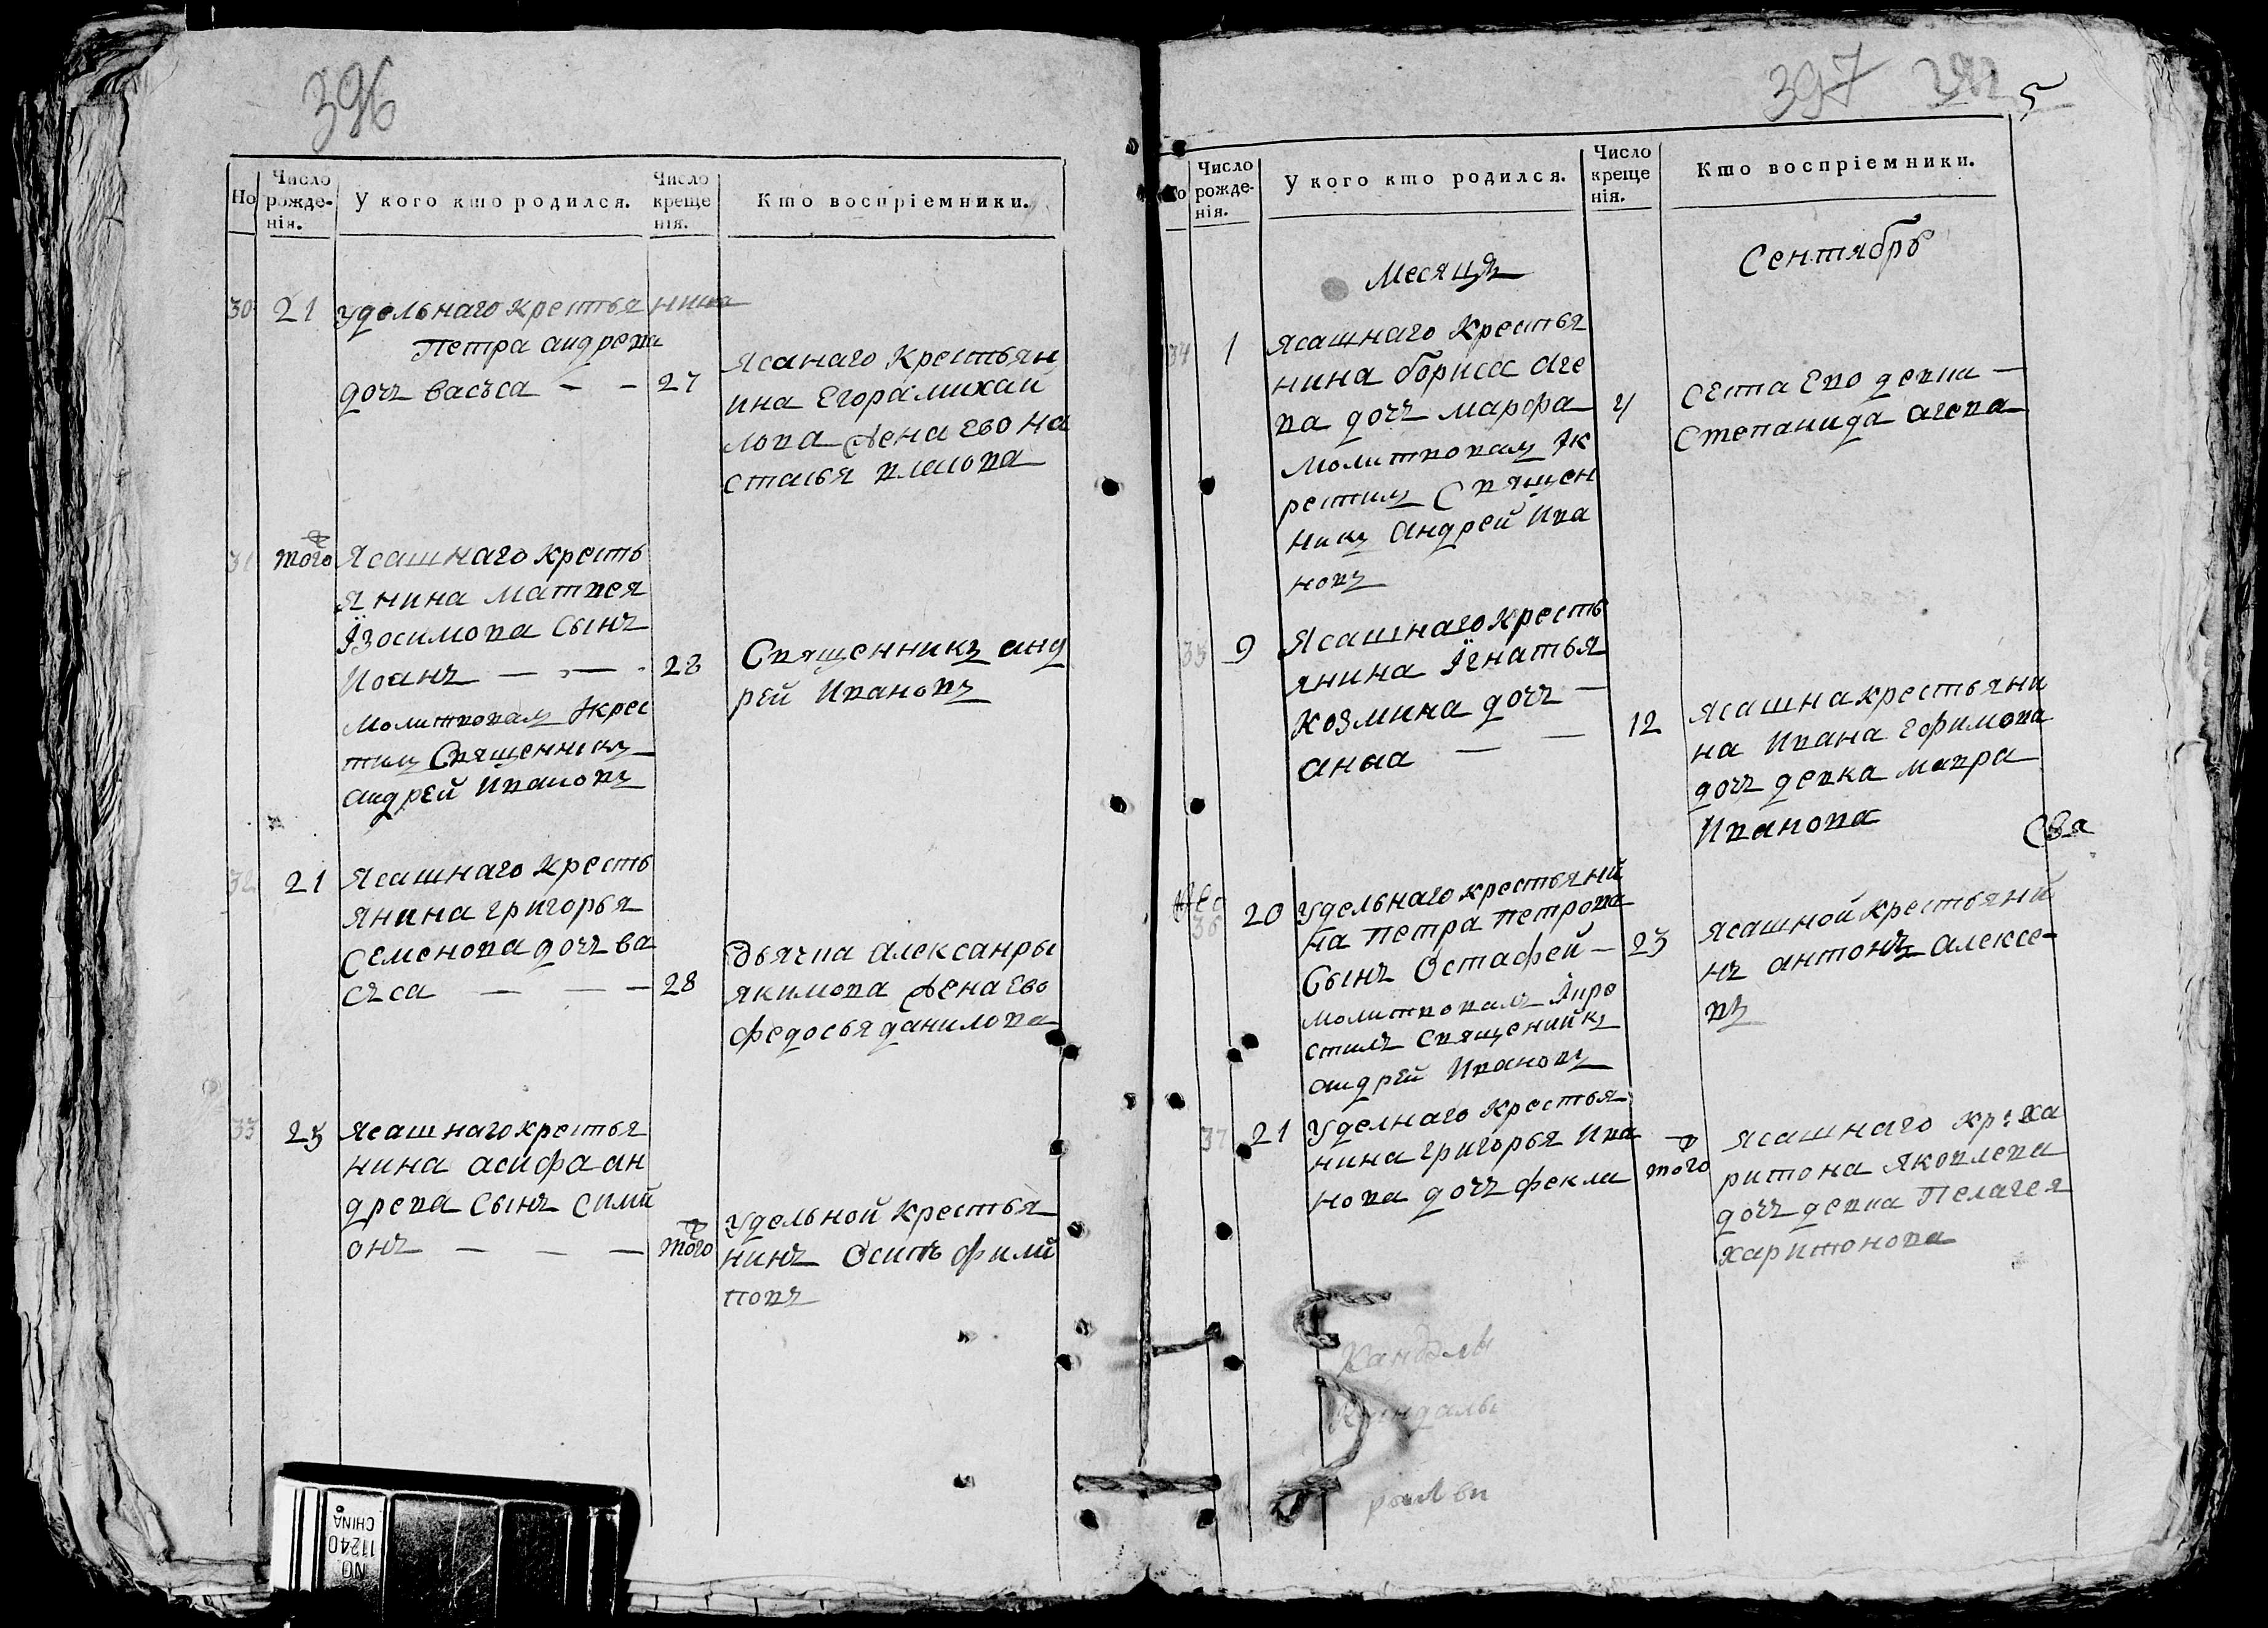 396
Но
Число рожде- нія.
У кого кто родился.
Число креще нія.
Кто воспріемники.
30 21 Удельнаго крестьянина
Петра андрева
дочь васъса — — 27
Ясанаго крестьян
ина Егора михаи
лова жена ево на
стасья власова
31 того Ясашнаго кресть
янина матвея
Ізосимова сынъ
Иоанъ — — 28
молитвовалъ Ікрес
тилъ Священникъ
андрей Ивановъ
Священникъ анд
рей Ивановъ
32 21 Ясашнаго кресть
янина григорья
Семенова дочь ва
съса — — — 28
Дьячка Алексанры
якимова жена Ево
федосья данилова
33 25 Ясашнаго крестья
нина асифа ан
древа сынъ сими
онъ — — — того
Удельной крестья
нинъ Осипъ фили
повъ
397
5
Но
Число рожде- нія.
У кого кто родился.
Число креще нія.
Кто воспріемники.
Месяцъ Сентябрь
34 1 Ясашнаго крестья
нина бориса аге
ва дочь марфа 4
молитвовалъ Ік
рестилъ Священ
никъ Андрей Ива
новъ
Степанида агева
35 9 Ясашнаго кресть
янина Ігнатья
козмина дочь —
анна — — 12
Ясашна крестьяни
на Ивана Ефимова
дочь девка мавра
Иванова
Сва
36 20 Удельнаго крестьяни
на петра петрова
Сынъ Остафей — 23
молитвовалъ Ікре
стилъ Священикъ
андрей Ивановъ
Ясашной крестьяни
нъ антонъ алексе-
въ
37 21 Уделнаго крестья
нина григорья Ива
нова дочь фекла того
Ясашнаго кр: Ха
ритона яковлева
дочь девка Пелагея
харитонова
Кандалы
Кандалы